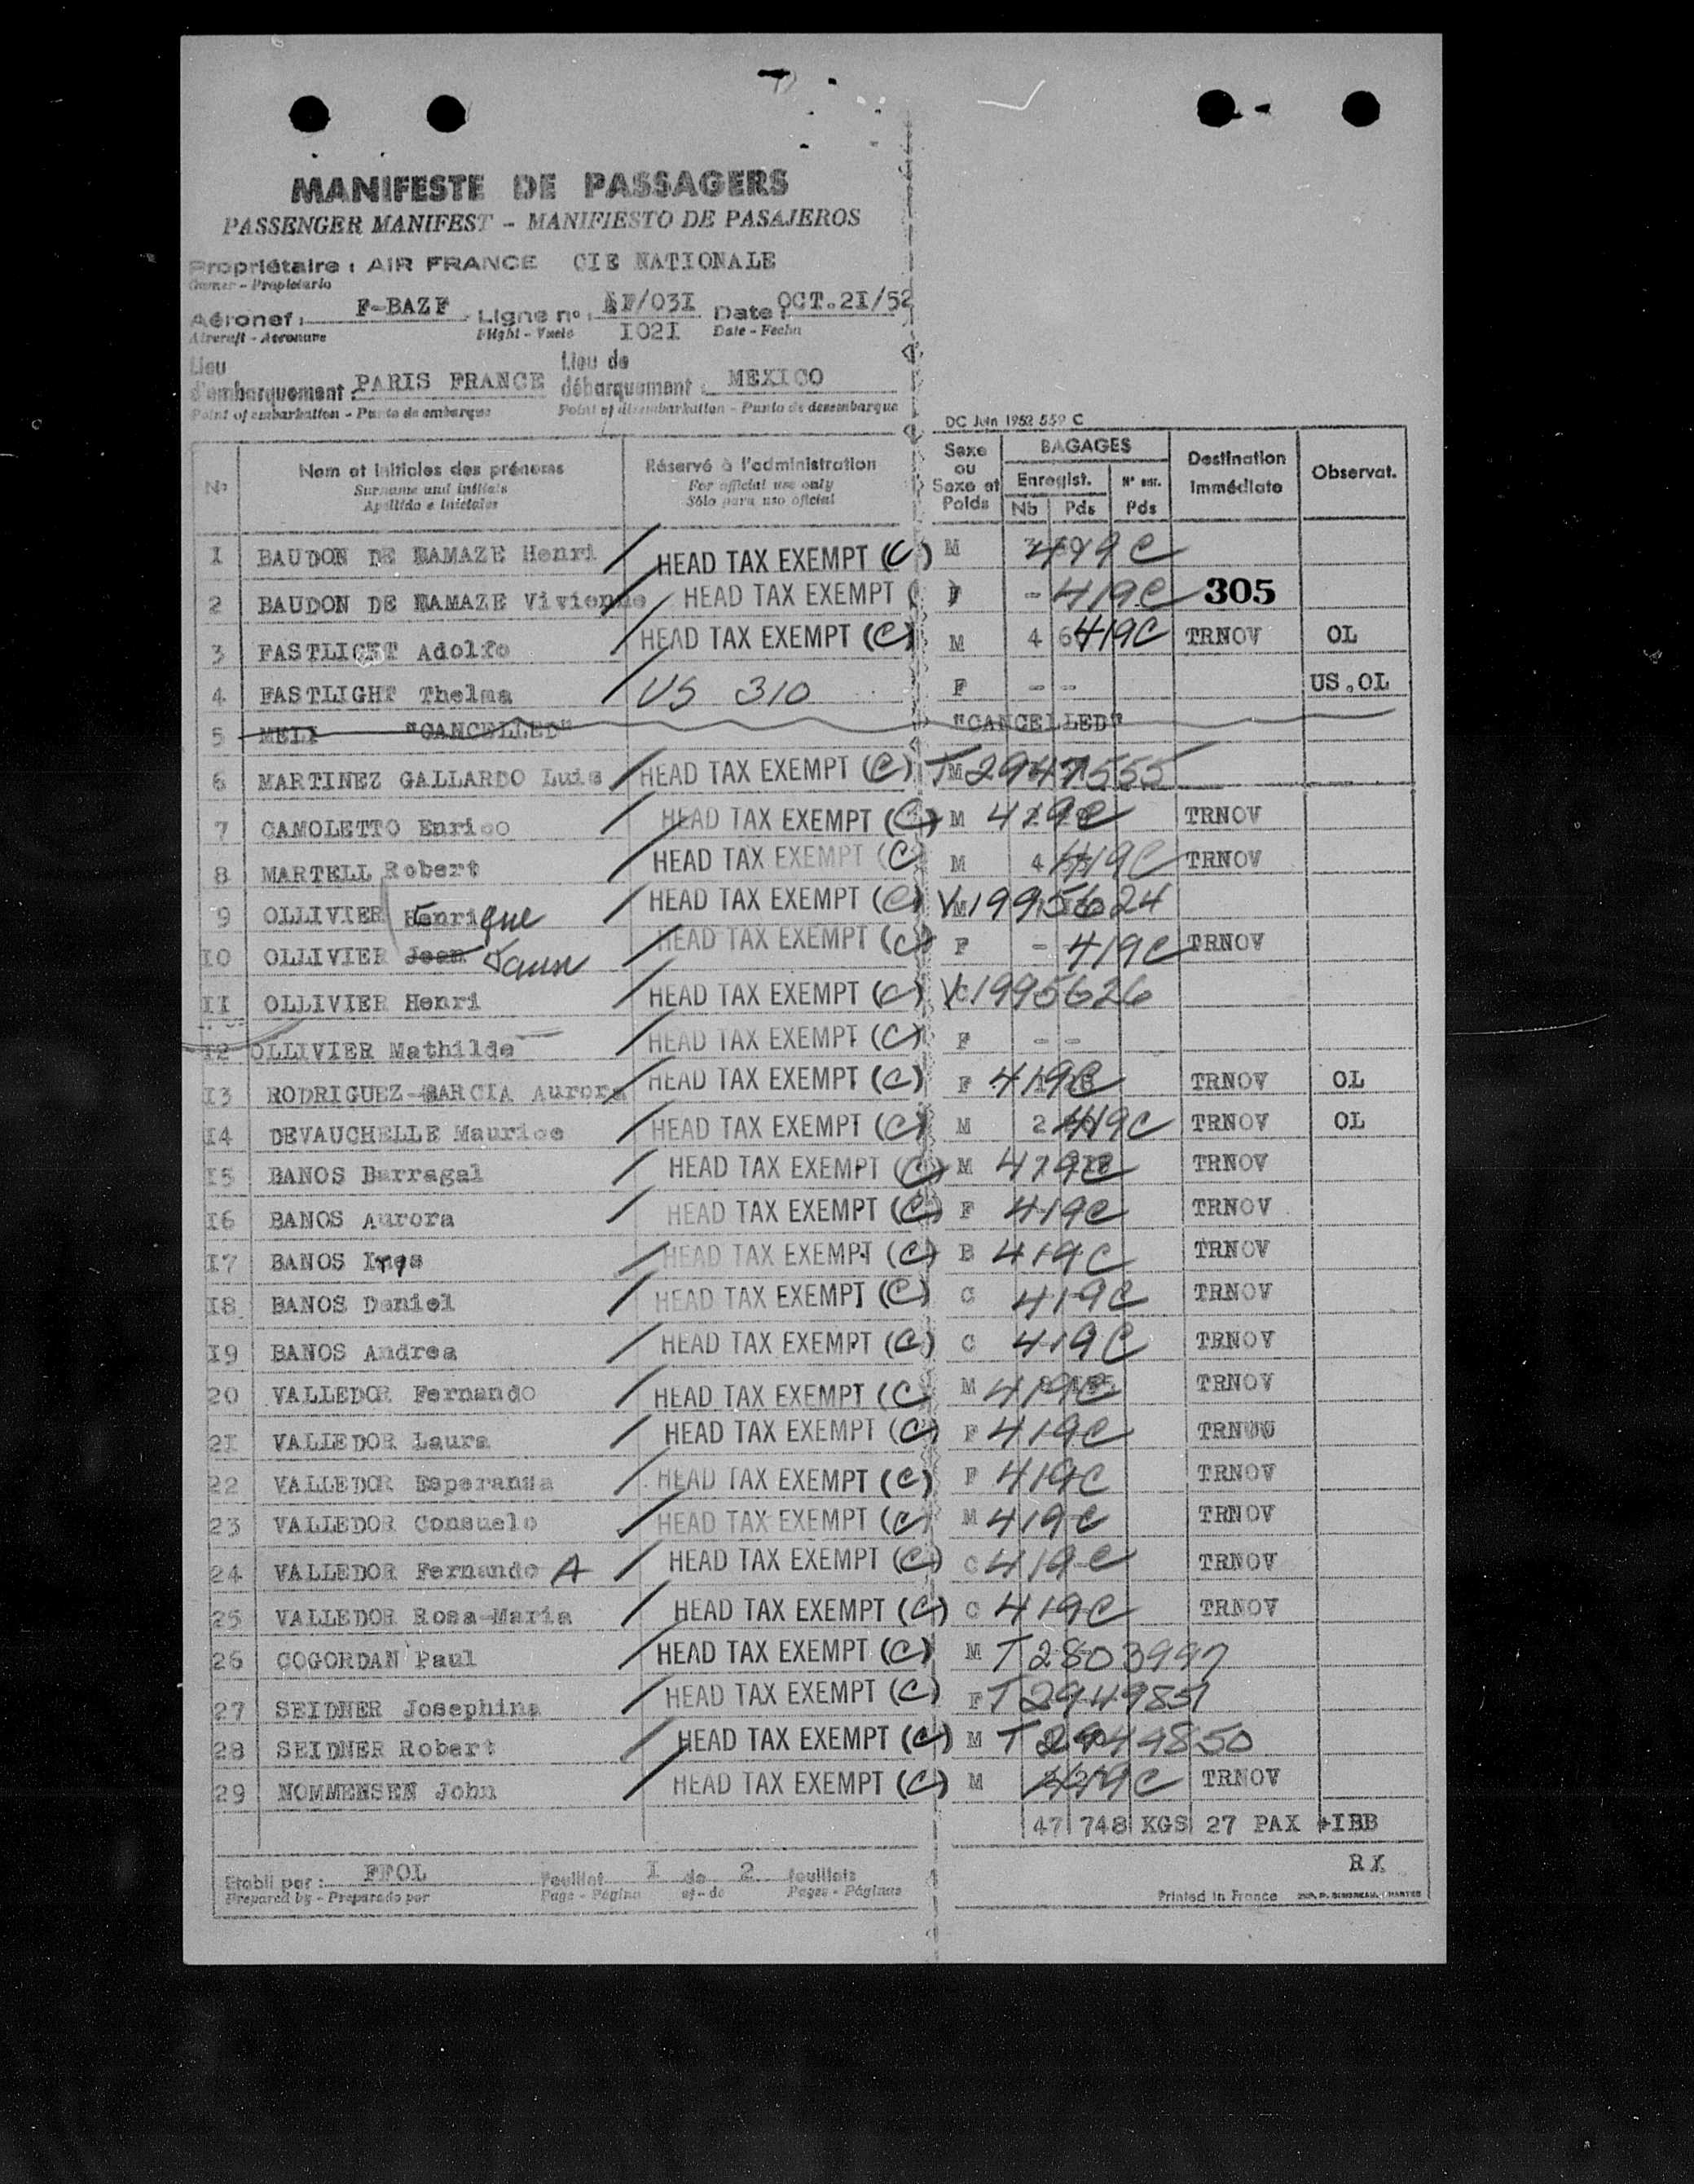 MANIFESTE DE PASSAGERS
PASSENGER MANIFEST - MANIFIESTO DE PASAJEROS
Propriétaire : AIR FRANCE CIE NATIONALE
Owner - Propietario
Aéronef : F-BAZF Ligne no : AF/03I Date : OCT.2I/52
Aircraft - Aeronave Flight - Vuelo I02I Date - Fecha
Lieu d'embarquement : PARIS FRANCE Lieu de débarquement : MEXICO
Point of embarkation - Punto de embarque Point of disembarkation - Punto de desembarque
DC Juin 1952 559 C
No Nom et initiales des prénoms Réservé à l'administration Sexe ou Sexe et Poids BAGAGES Destination Immédiate Observat.
Surname and initials For official use only Enregist. No enr.
Apellido e iniciales Sólo para uso oficial Nb Pds Pds
I BAUDON DE MAMAZE Henri HEAD TAX EXEMPT (C) M 419C
2 BAUDON DE MAMAZE Vivienne HEAD TAX EXEMPT ( F - 419C 305
3 FASTLICHT Adolfo HEAD TAX EXEMPT (C) M 4 6 419C TRNOV OL
4 FASTLIGHT Thelma US 310 F - - US.OL
5 MELI "CANCELLED" "CANCELLED"
6 MARTINEZ GALLARDO Luis HEAD TAX EXEMPT (C) T M 2947555
7 CAMOLETTO Enrico HEAD TAX EXEMPT (C) M 419C TRNOV
8 MARTELL Robert HEAD TAX EXEMPT (C M 4 419C TRNOV
9 OLLIVIER Henrique HEAD TAX EXEMPT (C) V M 1995624
I0 OLLIVIER Jean HEAD TAX EXEMPT (C) F - 419C TRNOV
II OLLIVIER Henri HEAD TAX EXEMPT (C) V C 1995626
I2 OLLIVIER Mathilde HEAD TAX EXEMPT (C) F - -
I3 RODRIGUEZ-GARCIA Aurora HEAD TAX EXEMPT (C) F 419C TRNOV OL
I4 DEVAUCHELLE Maurice HEAD TAX EXEMPT (C) M 2 419C TRNOV OL
I5 BANOS Barragal HEAD TAX EXEMPT (C) M 419C TRNOV
I6 BANOS Aurora HEAD TAX EXEMPT (C) F 419C TRNOV
I7 BANOS HEAD TAX EXEMPT (C) B 419C TRNOV
I8 BANOS Daniel HEAD TAX EXEMPT (C) C 419C TRNOV
I9 BANOS Andrea HEAD TAX EXEMPT (C) C 419C TRNOV
20 VALLEDOR Fernando HEAD TAX EXEMPT (C M 419C TRNOV
2I VALLEDOR Laura HEAD TAX EXEMPT (C) F 419C
22 VALLEDOR Esperansa HEAD TAX EXEMPT (C) F 419C TRNOV
23 VALLEDOR Consuelo HEAD TAX EXEMPT (C) M 419C TRNOV
24 VALLEDOR Fernando A HEAD TAX EXEMPT (C) C 419C TRNOV
25 VALLEDOR Rosa-Maria HEAD TAX EXEMPT (C) C 419C TRNOV
26 COGORDAN Paul HEAD TAX EXEMPT (C) M T 2803997
27 SEIDNER Josephine HEAD TAX EXEMPT (C) F T 2949851
28 SEIDNER Robert HEAD TAX EXEMPT (C) M T 2944850
29 NOMMENSEN John HEAD TAX EXEMPT (C) M 419C TRNOV
47 748 KGS 27 PAX +IBB
RX
Etabli par : FFOL Feuillet I de 2 feuillets
Prepared by - Preparado por Page - Página of - de Pages - Páginas
Printed in France